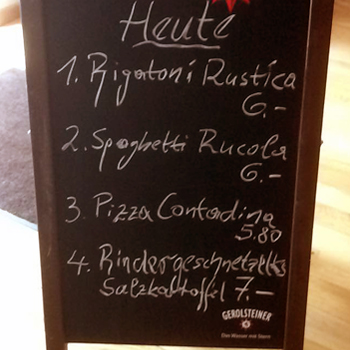 Heute
1. Rigatoni Rustica
6.-
2. Spaghetti Rucola
6.-
3. Pizza Contadina
5.80
4. Rindergeschnetzeltes
Salzkartoffel 7.-
GEROLSTEINER
Das Wasser mit Stern